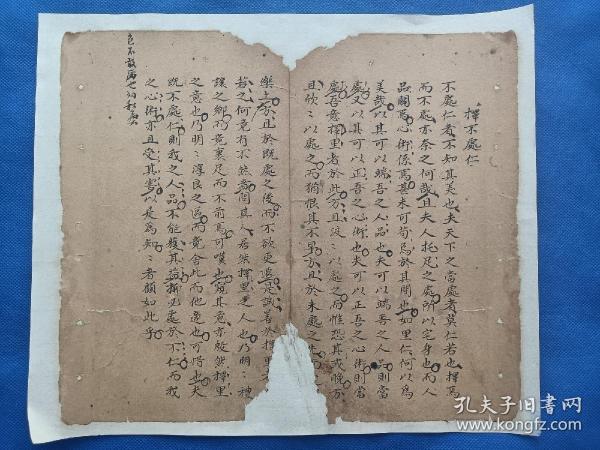 擇不處仁
不處仁者不知其美也夫天下之當處者莫仁若也擇焉
而不處亦奈之何哉且夫人托足之處所以宅身也而人
品關焉心術係焉甚未可苟焉於其間也如里仁何以為
美哉以其可以端吾之人品也夫可以端吾之人品則當
處又以其可以正吾之心術也夫可以正吾之心術則當
處吾意擇里者於此方且汲:以處之而惟恐其或晚方
且欣:以處之而猶恨其不早方且於未處之先而
樂方且於既處之後而不欲更遷是誠善於擇里
若之何竟有不然者間其人居然擇里之人也乃明:禮
讓之鄉而竟裹足而不前焉可嘆也竟亦殷然擇里
之意也乃明:淳良之區而竟舍此而他適也可惜也夫
既不處仁則我之人品不能獲其益擇必處於不仁而我
之心術亦且受其害以是為知:者顧如此乎
孔夫子旧书网
www.kongfz.com